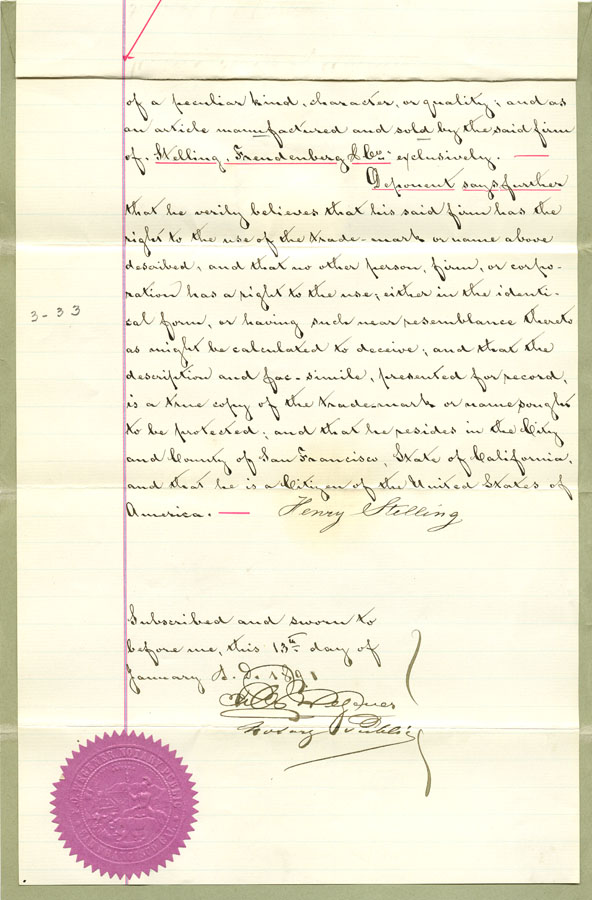 of a peculiar kind, character, or quality; and as
an article manufactured and sold by the said firm
of Stelling, Freudenberg & Co. exclusively. —
Deponent says further
that he verily believes that his said firm has the
right to the use of the trade-mark or name above
described, and that no other person, firm, or corpo-
ration has a right to the use; either in the identi-
cal form, or having such near resemblance thereto
as might be calculated to deceive; and that the
description and fac-simile, presented for record,
3-33
is a true copy of the trade-mark or name sought
to be protected; and that he resides in the City
and County of San Francisco, State of California,
and that he is a Citizen of the United States of
America. — Henry Stelling
Subscribed and sworn to
before me, this 13th day of
January A. D. 1891
Notary Public
NOTARY PUBLIC